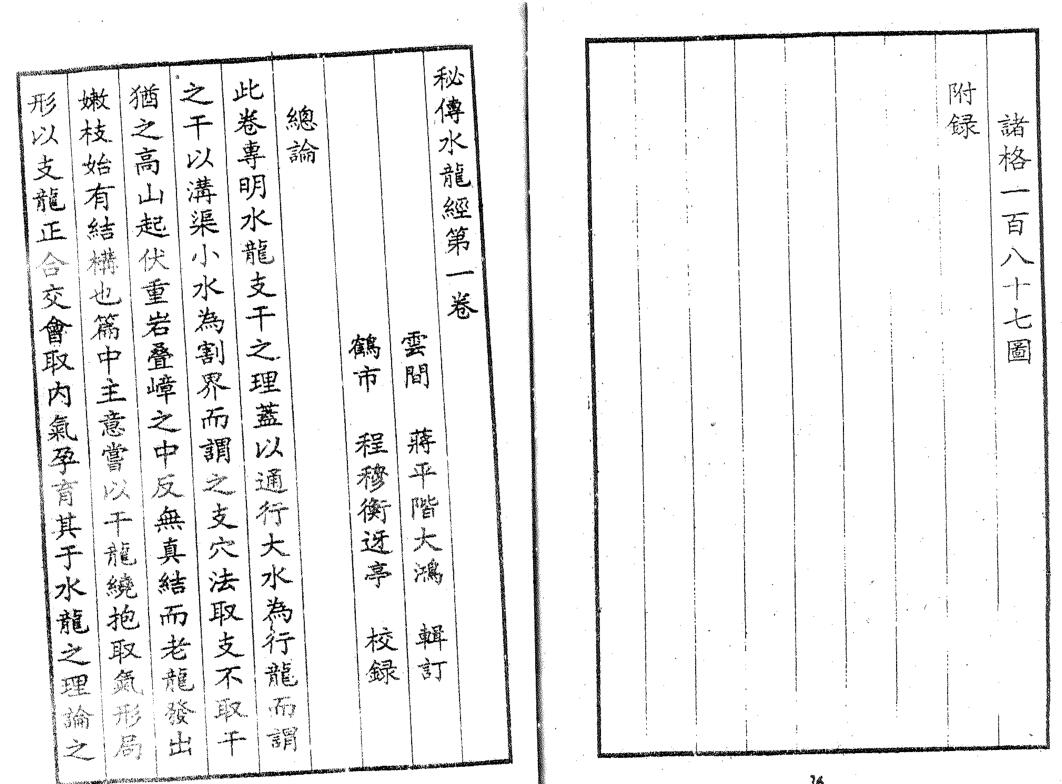 諸格一百八十七圖
附録
秘傳水龍經第一卷
雲間 蔣平階大鴻 輯訂
鶴市 程穆衡迓亭 校録
總論
此卷專明水龍支干之理蓋以通行大水為行龍而謂
之干以溝渠小水為割界而謂之支穴法取支不取干
猶之高山起伏重岩疊嶂之中反無真結而老龍發出
嫩枝始有結構也篇中主意嘗以干龍繞抱取氣形局
形以支龍正合交會取內氣孕育其于水龍之理論之
26